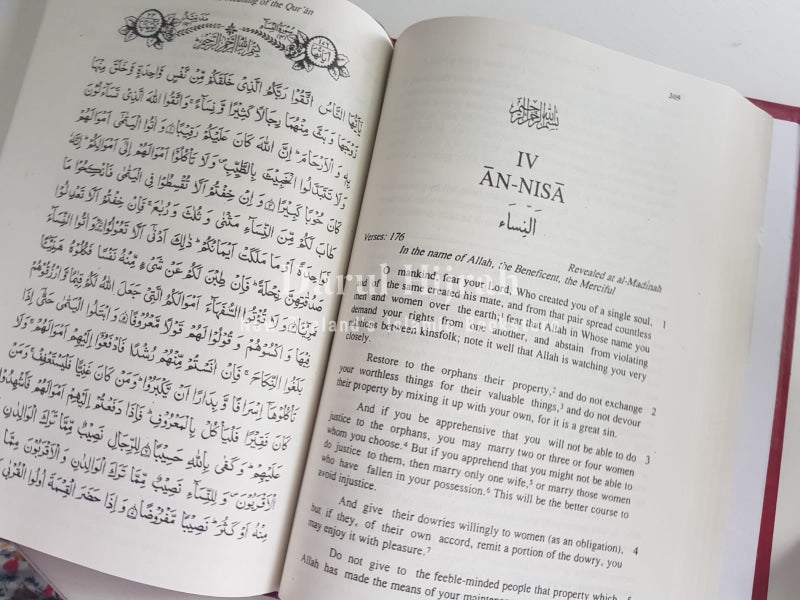 Meaning of the Qur'ān
بِسْمِ اللهِ الرَّحْمٰنِ الرَّحِيْمِ
يٰٓاَيُّهَا النَّاسُ اتَّقُوْا رَبَّكُمُ الَّذِيْ خَلَقَكُمْ مِّنْ نَّفْسٍ وَّاحِدَةٍ وَّخَلَقَ مِنْهَا
زَوْجَهَا وَبَثَّ مِنْهُمَا رِجَالًا كَثِيْرًا وَّنِسَآءً ۚ وَاتَّقُوا اللهَ الَّذِيْ تَسَآءَلُوْنَ
بِهٖ وَالْاَرْحَامَ ؕ اِنَّ اللهَ كَانَ عَلَيْكُمْ رَقِيْبًا ۝ وَاٰتُوا الْيَتٰمٰٓى اَمْوَالَهُمْ
وَلَا تَتَبَدَّلُوا الْخَبِيْثَ بِالطَّيِّبِ ۪ وَلَا تَاْكُلُوْٓا اَمْوَالَهُمْ اِلٰٓى اَمْوَالِكُمْ ؕ اِنَّهٗ
كَانَ حُوْبًا كَبِيْرًا ۝ وَاِنْ خِفْتُمْ اَلَّا تُقْسِطُوْا فِى الْيَتٰمٰى فَانْكِحُوْا مَا
طَابَ لَكُمْ مِّنَ النِّسَآءِ مَثْنٰى وَثُلٰثَ وَرُبٰعَ ۚ فَاِنْ خِفْتُمْ اَلَّا تَعْدِلُوْا
فَوَاحِدَةً اَوْ مَا مَلَكَتْ اَيْمَانُكُمْ ؕ ذٰلِكَ اَدْنٰٓى اَلَّا تَعُوْلُوْا ۝ وَاٰتُوا النِّسَآءَ
صَدُقٰتِهِنَّ نِحْلَةً ؕ فَاِنْ طِبْنَ لَكُمْ عَنْ شَيْءٍ مِّنْهُ نَفْسًا فَكُلُوْهُ هَنِيْٓئًا
مَّرِيْٓئًا ۝ وَلَا تُؤْتُوا السُّفَهَآءَ اَمْوَالَكُمُ الَّتِيْ جَعَلَ اللهُ لَكُمْ قِيٰمًا وَّارْزُقُوْهُمْ
فِيْهَا وَاكْسُوْهُمْ وَقُوْلُوْا لَهُمْ قَوْلًا مَّعْرُوْفًا ۝ وَابْتَلُوا الْيَتٰمٰى حَتّٰٓى اِذَا
بَلَغُوا النِّكَاحَ ۚ فَاِنْ اٰنَسْتُمْ مِّنْهُمْ رُشْدًا فَادْفَعُوْٓا اِلَيْهِمْ اَمْوَالَهُمْ ۚ وَلَا
تَاْكُلُوْهَآ اِسْرَافًا وَّبِدَارًا اَنْ يَّكْبَرُوْا ؕ وَمَنْ كَانَ غَنِيًّا فَلْيَسْتَعْفِفْ ۚ وَمَنْ
كَانَ فَقِيْرًا فَلْيَاْكُلْ بِالْمَعْرُوْفِ ؕ فَاِذَا دَفَعْتُمْ اِلَيْهِمْ اَمْوَالَهُمْ فَاَشْهِدُوْا
عَلَيْهِمْ ؕ وَكَفٰى بِاللهِ حَسِيْبًا ۝ لِلرِّجَالِ نَصِيْبٌ مِّمَّا تَرَكَ الْوَالِدٰنِ
وَالْاَقْرَبُوْنَ ۪ وَلِلنِّسَآءِ نَصِيْبٌ مِّمَّا تَرَكَ الْوَالِدٰنِ وَالْاَقْرَبُوْنَ مِمَّا قَلَّ
مِنْهُ اَوْ كَثُرَ ؕ نَصِيْبًا مَّفْرُوْضًا ۝ وَاِذَا حَضَرَ الْقِسْمَةَ اُولُوا الْقُرْبٰى
305
بسم الله الرحمن الرحيم
IV
ĀN-NISĀ
اَلنِّسَاء
Verses: 176
Revealed at al-Madīnah
In the name of Allah, the Beneficent, the Merciful
O mankind, fear your Lord, Who created you of a single soul, 1
and of the same created his mate, and from that pair spread countless
men and women over the earth; fear Allah in Whose name you
demand your rights from one another, and abstain from violating
relations between kinsfolk; note it well that Allah is watching you very
closely.
Restore to the orphans their property,² and do not exchange 2
your worthless things for their valuable things,³ and do not devour
their property by mixing it up with your own, for it is a great sin.
And if you be apprehensive that you will not be able to do 3
justice to the orphans, you may marry two or three or four women
whom you choose.⁴ But if you apprehend that you might not be able to
do justice to them, then marry only one wife,⁵ or marry those women
who have fallen in your possession.⁶ This will be the better course to
avoid injustice.
And give their dowries willingly to women (as an obligation), 4
but if they, of their own accord, remit a portion of the dowry, you
may enjoy it with pleasure.⁷
Do not give to the feeble-minded people that property which 5
Allah has made the means of your
Darul Hijrah
New Zealand's Islamic Bookstore